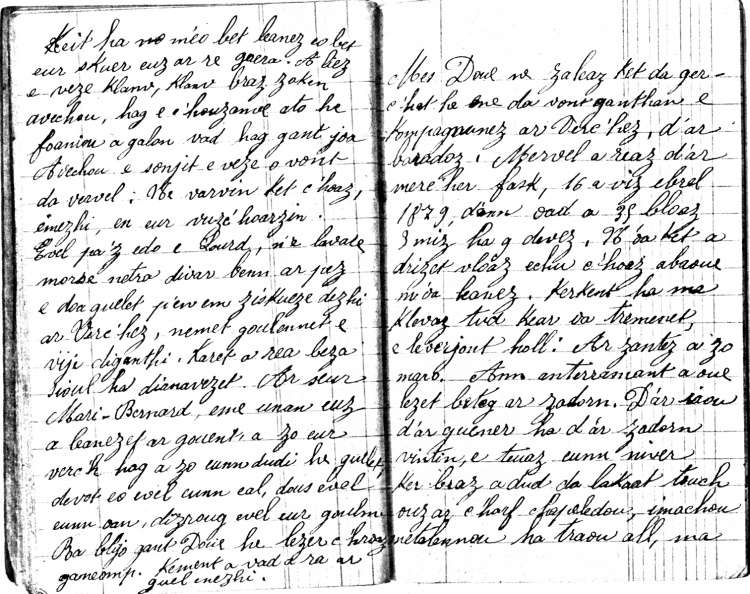 Keit ha ma méo bet leanez eo bet
eur skuer euz ar re gaera. A bez
e veze klanv, klanv braz zoken
avechou, hag e c'houzanve ato he
foaniou a galon vad hag gant joa
Avechou e sonjit e veze o vont
da vervel : Ne varvin ket c'hoaz,
emezhi, en eur vuzc'hoarzin.
Evel pa'z edo e Lourd, n'e lavare
morse netra divar benn ar pez
e doa guelet pe'vem ziskueze dezhi
ar Verc'hez, nemet goulennet e
vije diganthi. Karet a rea beza
sioul ha dianavezet. Ar seur
Mari-Bernard, eme unan euz
a leanezet ar gouent, a zo eur
verc'h hag a zo eunn dudi he guelet,
devot eo evel eunn eal, dous evel
eunn oan, dizroug evel eur goulm
Ra blijo gant Doue he lezer c'hoaz
ganeomp. Kement a vad d'ra ar
guel anezhi.
Mes Doue ne zaleaz ket da ger-
c'hat he ene da vont ganthan e
kompagnunez ar Verc'hez, d'ar
baradoz. Mervel a reaz d'ar
merc'her fask, 16 a viz ebrel
1879, d'ann oad a 35 bloaz
3 miz ha 9 devez. N'oa ket a
drizek vloaz echu c'hoaz abaoue
m'oa leanez. Kerkent ha ma
klevaz tud kear oa tremenet,
e leverjont holl : Ar zantez a zo
maro. Ann anterramant a oue
lezet beteg ar zadorn. D'ar iaou
d'ar guener ha d'ar zadorn
vintin, e teuaz eunn niver
ker braz a dud da lakaat touch
ouz ar c'horf chapeledou, imachou
metalennou ha traou all, ma